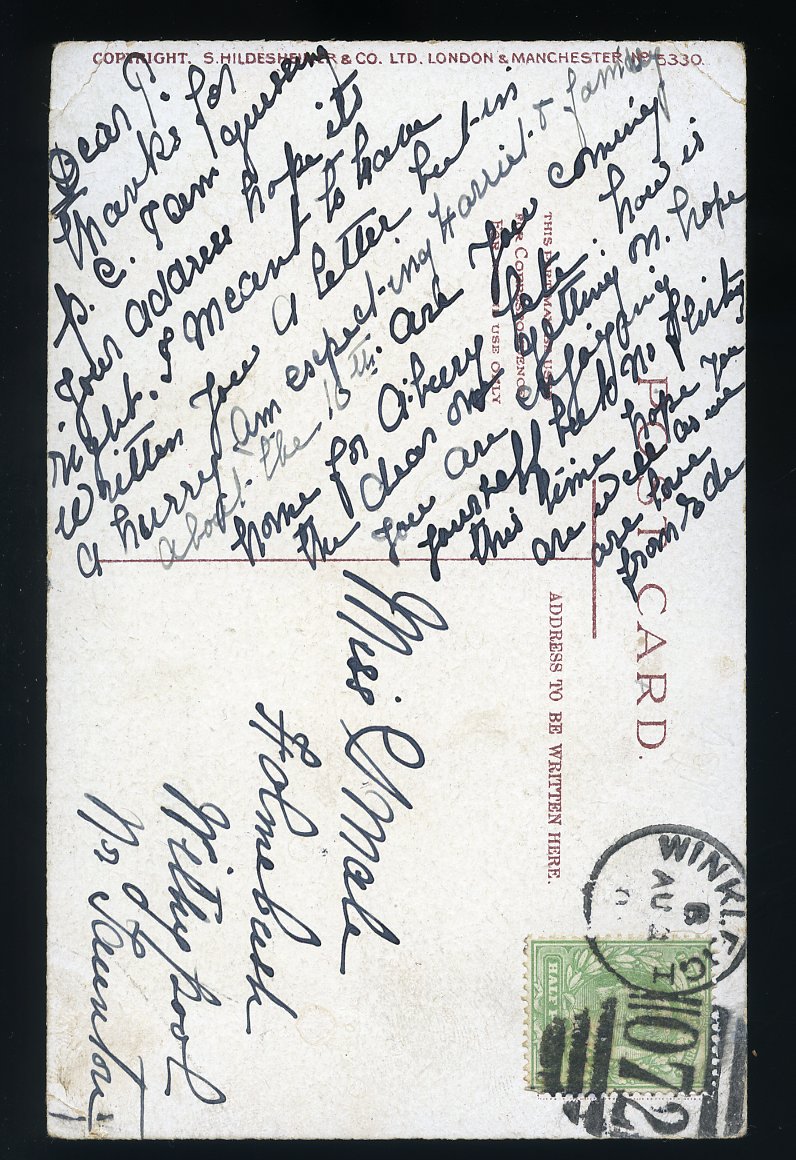 COPYRIGHT. S. HILDESHEIMER & CO. LTD. LONDON & MANCHESTER. No. 5330.
Dear P.
thanks for
p. c. I am guessing
your address hope its
right. I meant to have
written you a letter but in
a hurry am expecting Harriet & family
about the 16th. are you coming
home for
the dear one getting on. hope
you are enjoying
yourself but no flirting
this time hope you
are well as we
are love
from
how is
THIS PART MAY BE USED
FOR CORRESPONDENCE
FOR USE ONLY
POST CARD.
ADDRESS TO BE WRITTEN HERE.
Miss L Male
Holmebush
Withypool
Nr Taunton
WINKLEIGH
AU
HALF
072